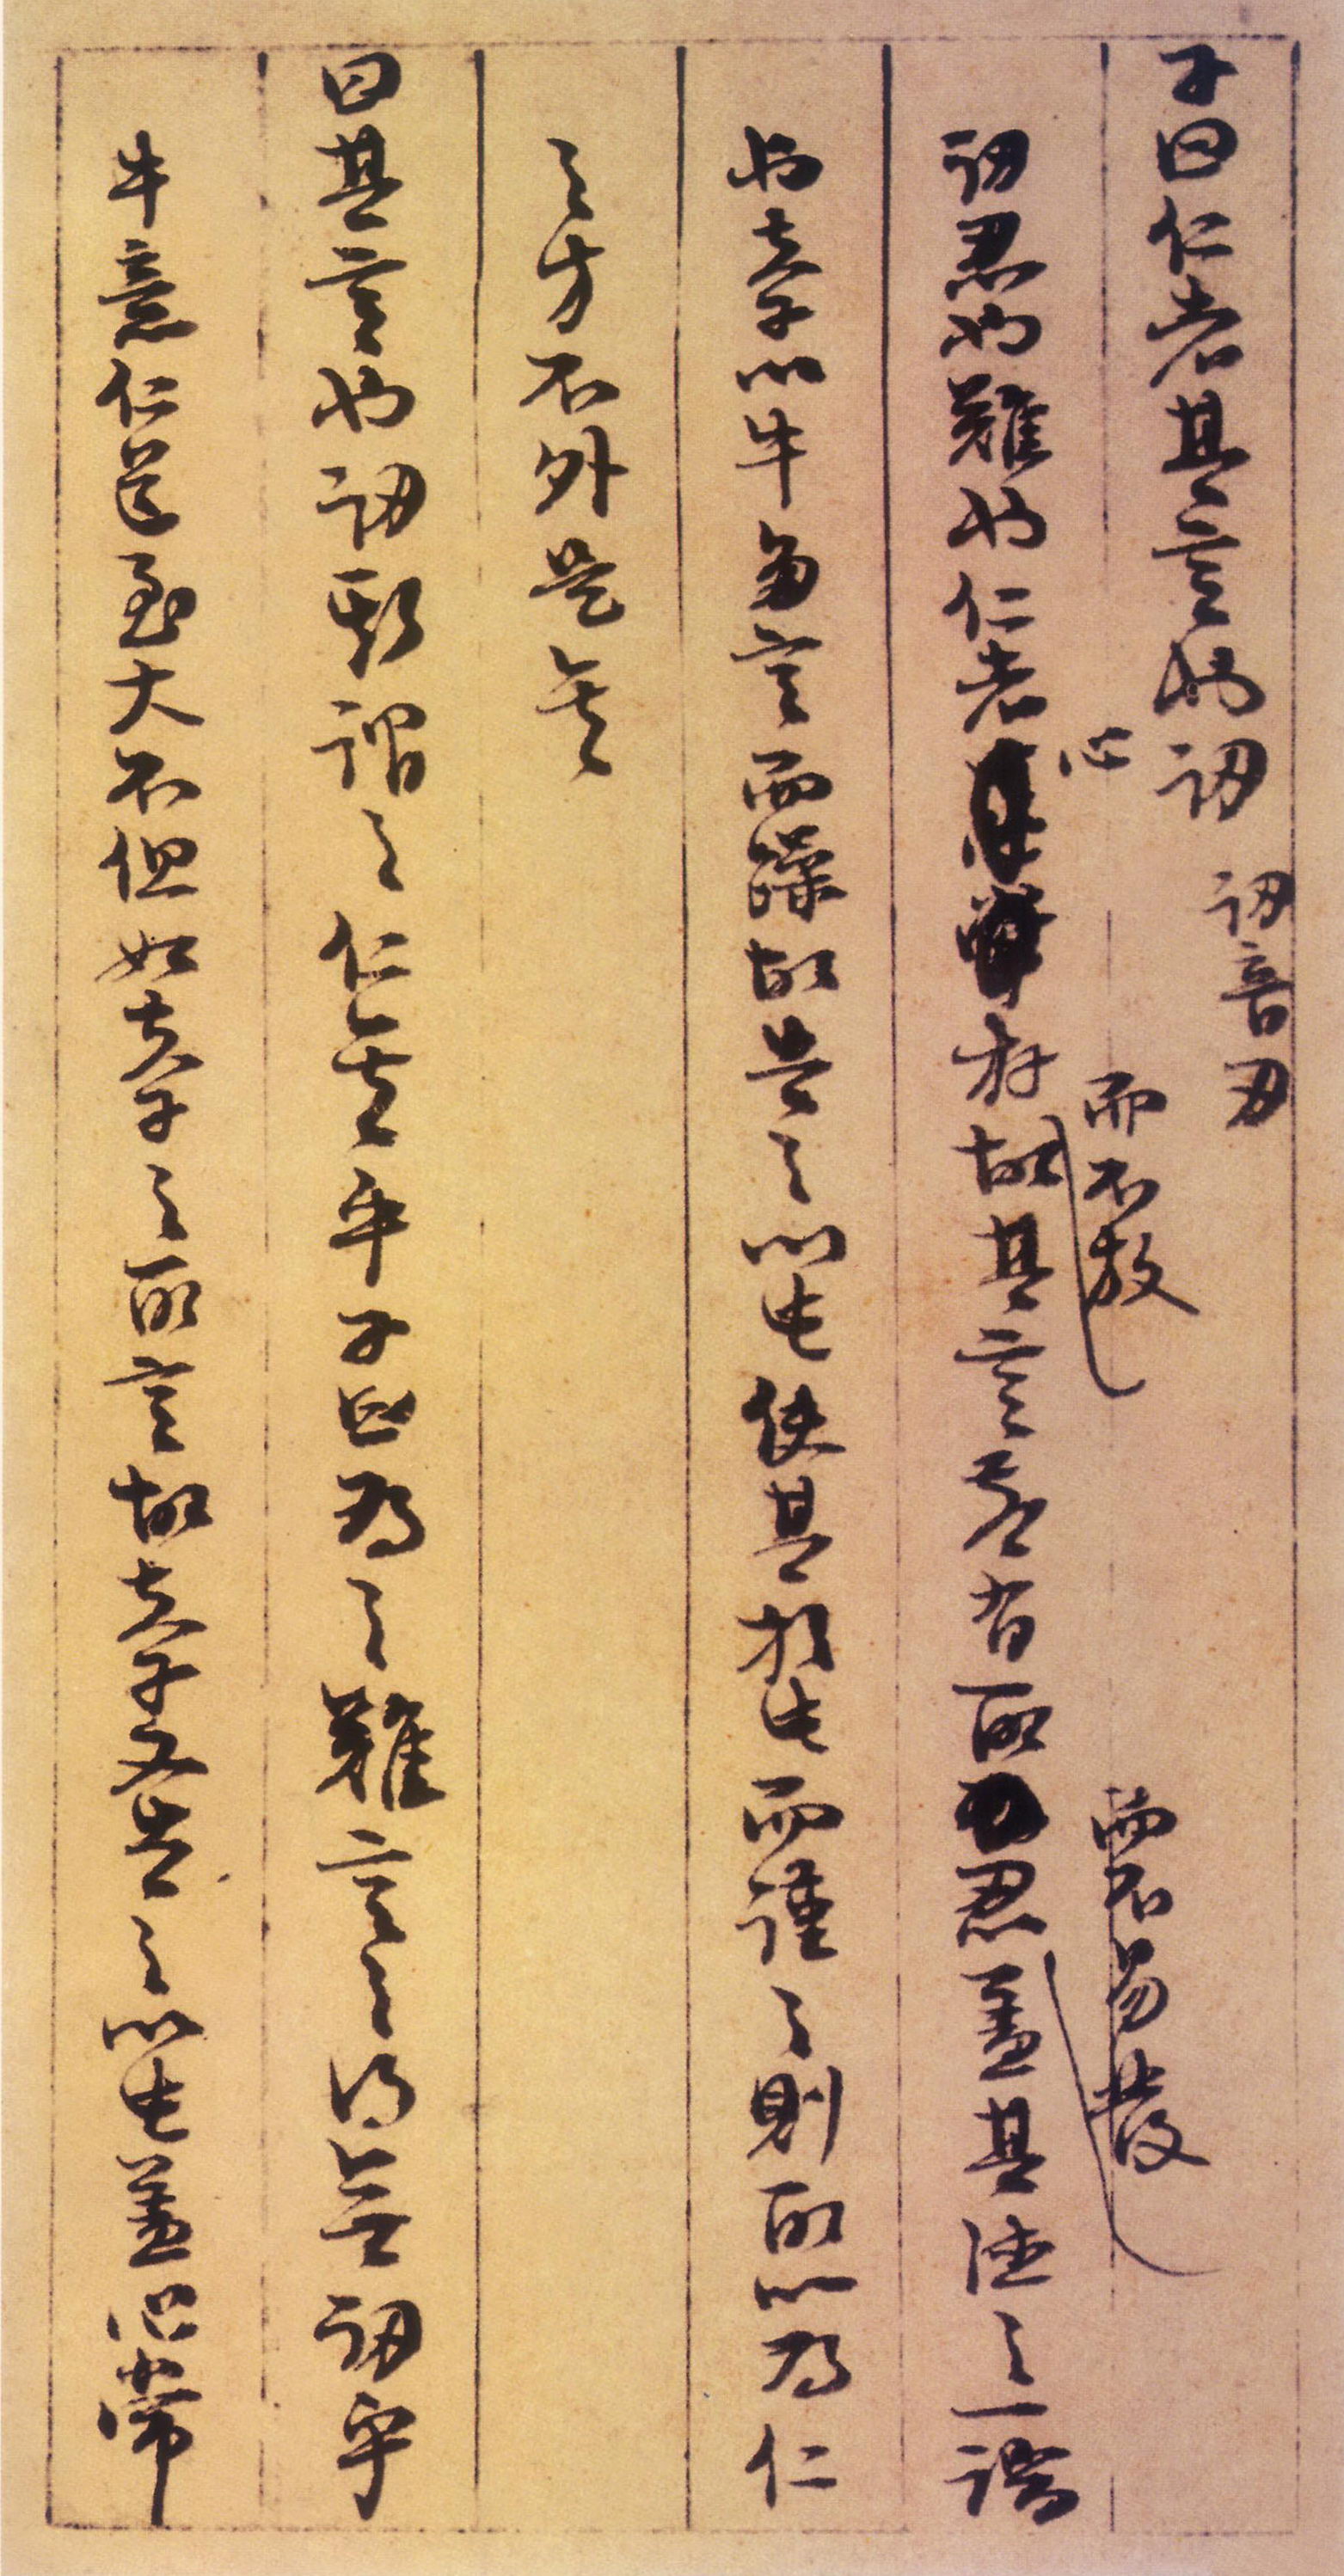 子曰仁者其言也訒 訒音刃
心 而不放 而不易發
訒忍也難也仁者存故其言若有所忍蓋其德之一端
也夫子以牛多言而躁故告之以此使其於此而謹之則所以為仁
之方不外是矣
曰其言也訒斯謂之仁矣乎子曰為之難言之得無訒乎
牛意仁道至大不但如夫子之所言故夫子又告之以此蓋心常